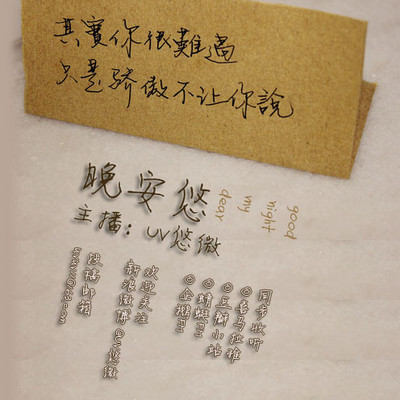 其實你很難過
只是骄傲不让你說
晚安悠
good
night
my
dear
主播：UV悠微
同步收听
◎喜马拉雅
◎豆瓣小站
◎蜻蜓FM
◎企鹅FM
欢迎关注
新浪微博@UV悠微
投稿邮箱